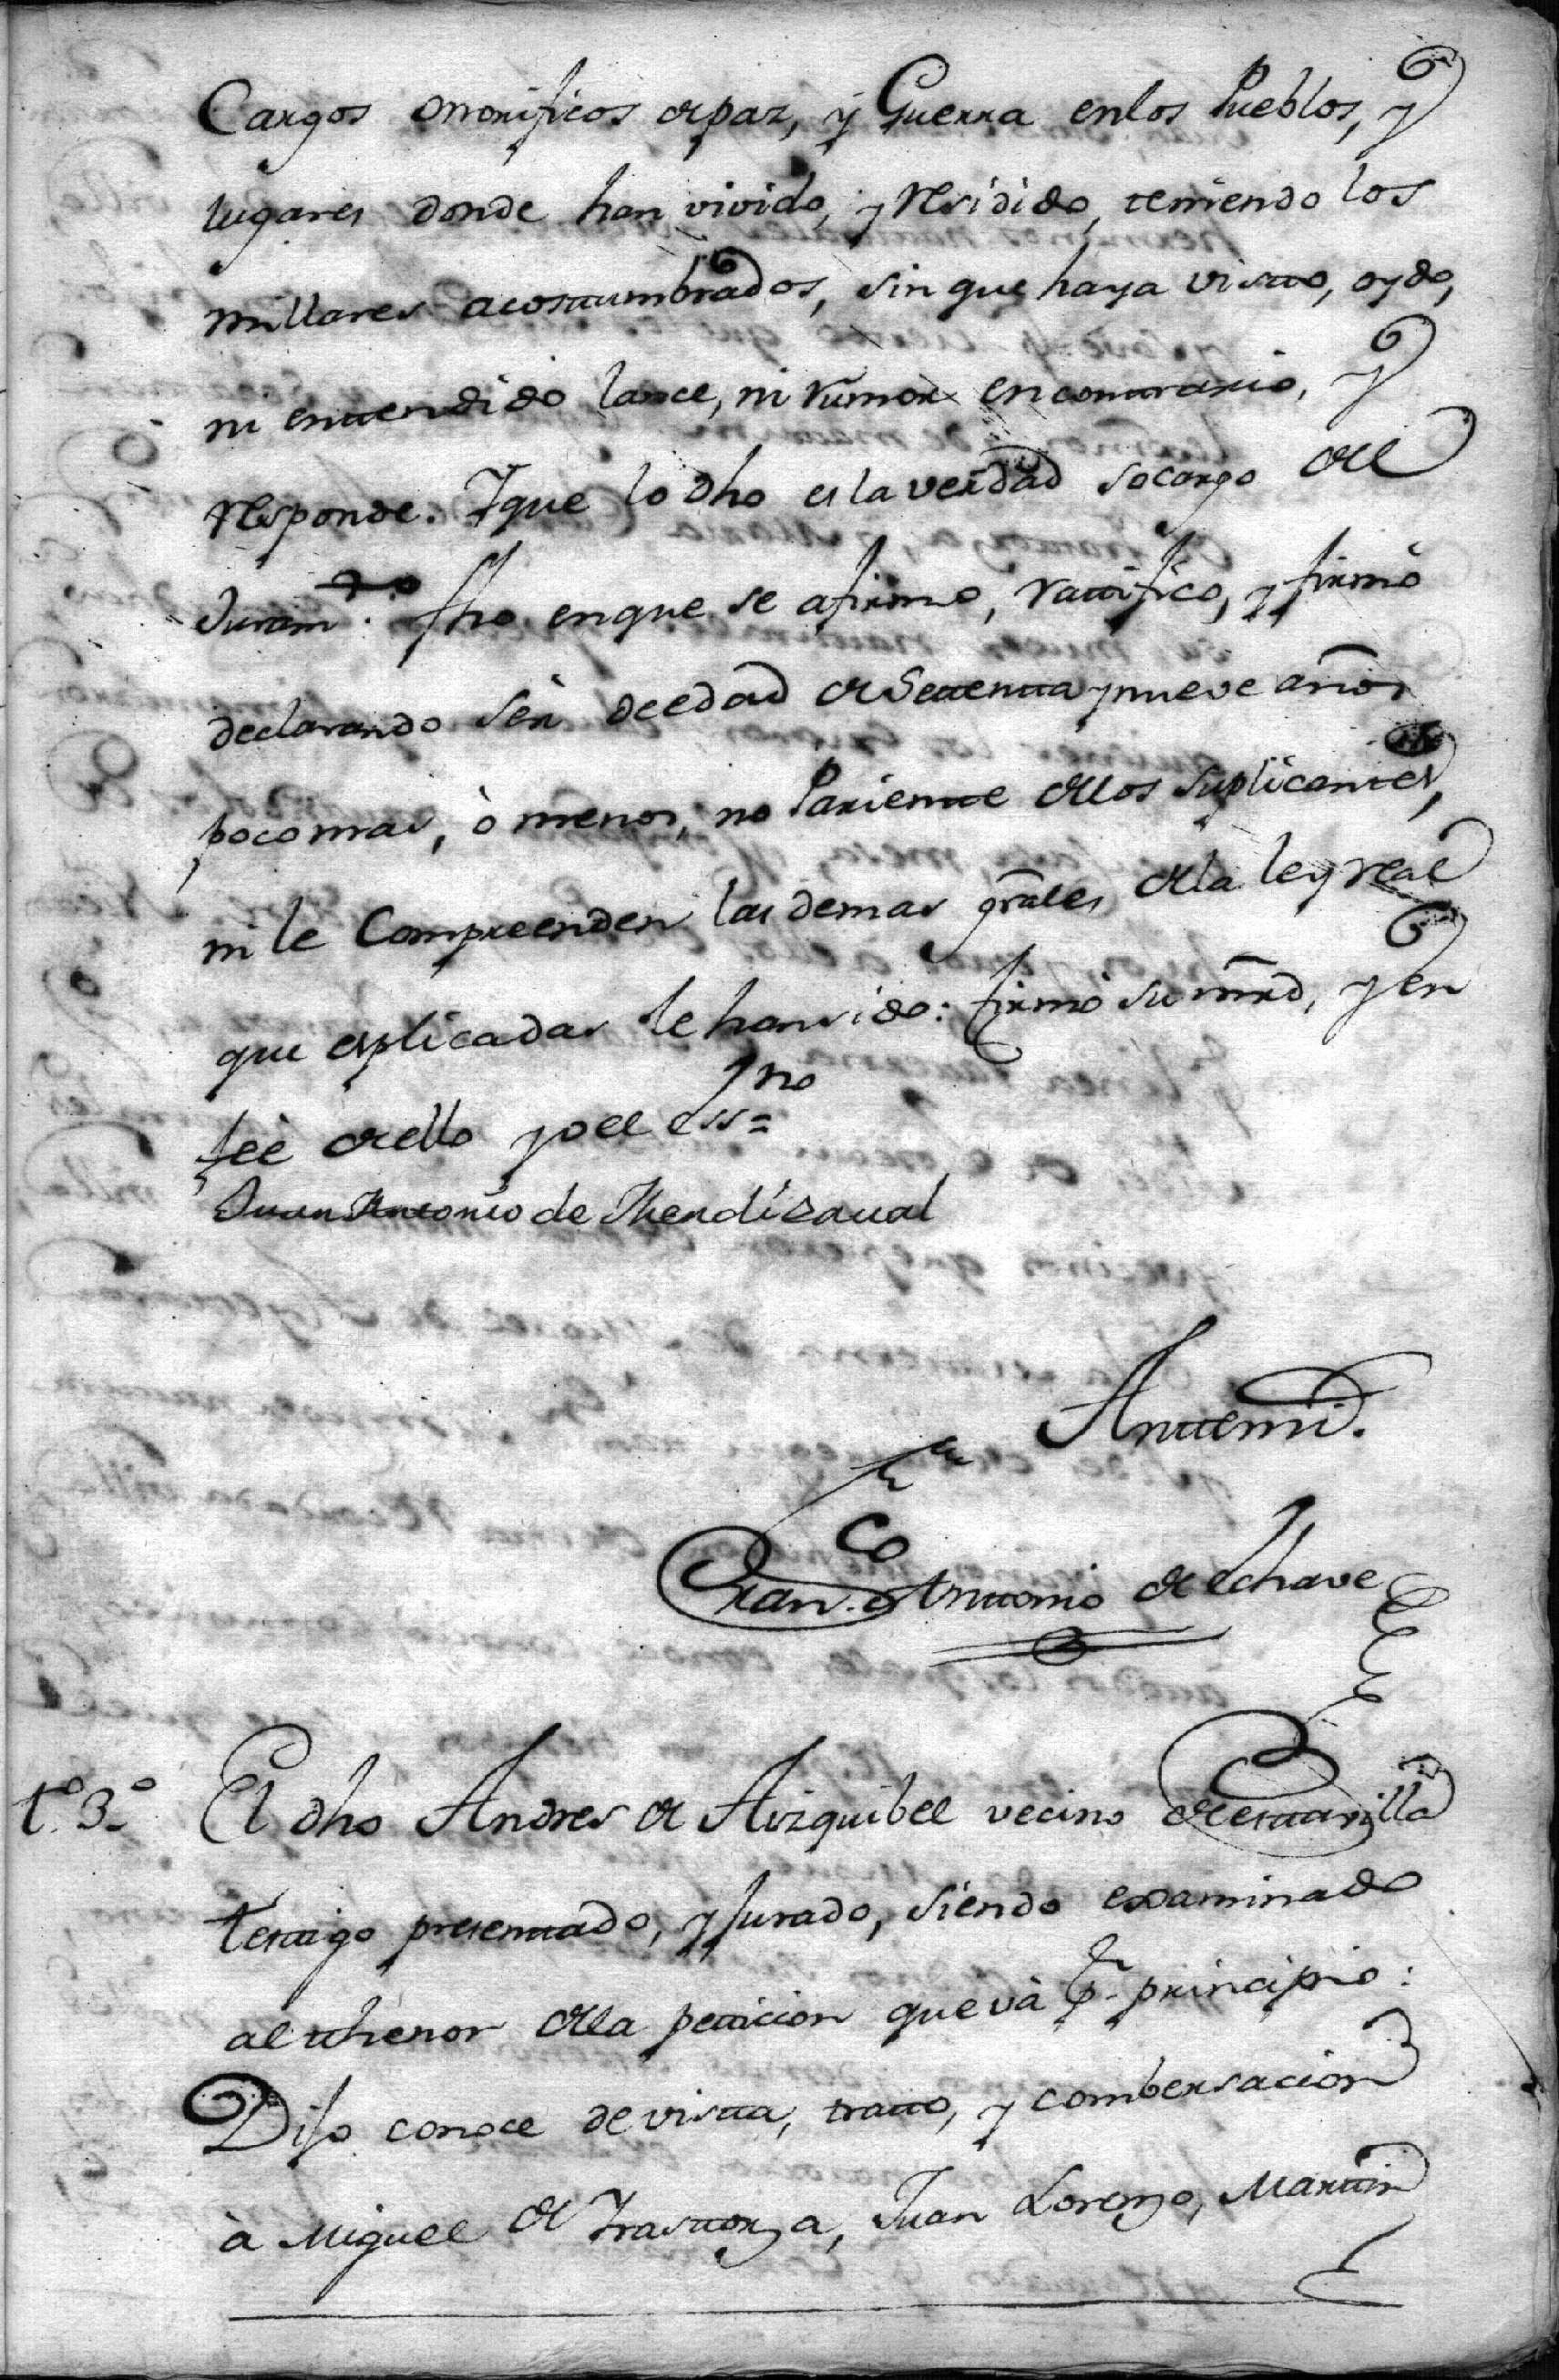 Cargos onorificos de paz, y Guerra enlos Pueblos, y
lugares donde han vivido, y residido, teniendo los
millares acosttumbrados, sin que haya vistto, oydo,
ni enttendido lance, ni rumor en conttrario, y
responde. Y que lo dho es la verdad socargo del
Juramto. fho enque se afirmo, rattifico, y firmò
declarando sèr de edad de Settentta y nueve años
poco mas, ò menos, no Parientte dellos suplicantes,
ni le Comprenden las demas grâles dela ley real
que esplicadas le han sido: firmó su mrd, y en
feè dello yo el essno =
Juan Antonio de Mendizaual
Anttemi.
Franco Anttonio de Echave
t.o 3.o El dho Andres de Aizquibel vecino de estta villa
testtigo presenttado, y Jurado, siendo examinado
al thenor dela petticion que và pr. principio:
Dijo conoce de vistta, tratto, y combersacion
à Miguel de Yrasttorza, Juan Lorenzo, Marttin